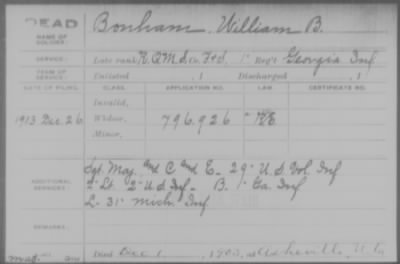 DEAD
NAME OF SOLDIER:
Bonham, William B.
SERVICE:
Late rank, R.Q.M.S. Co. F&S. 1" Reg't Georgia Inf
TERM OF SERVICE:
Enlisted , 1 Discharged , 1
DATE OF FILING. CLASS. APPLICATION NO. LAW. CERTIFICATE NO.
Invalid,
1913 Dec. 26 Widow, 796.926
Minor,
ADDITIONAL SERVICES:
Sgt. Maj. and C and E - 29" U.S. Vol. Inf
2" Lt. 2" U.S. Inf - B. 1" Ga. Inf
L- 31" Mich. Inf
REMARKS:
Died Dec 1, at Asheville, N.C.